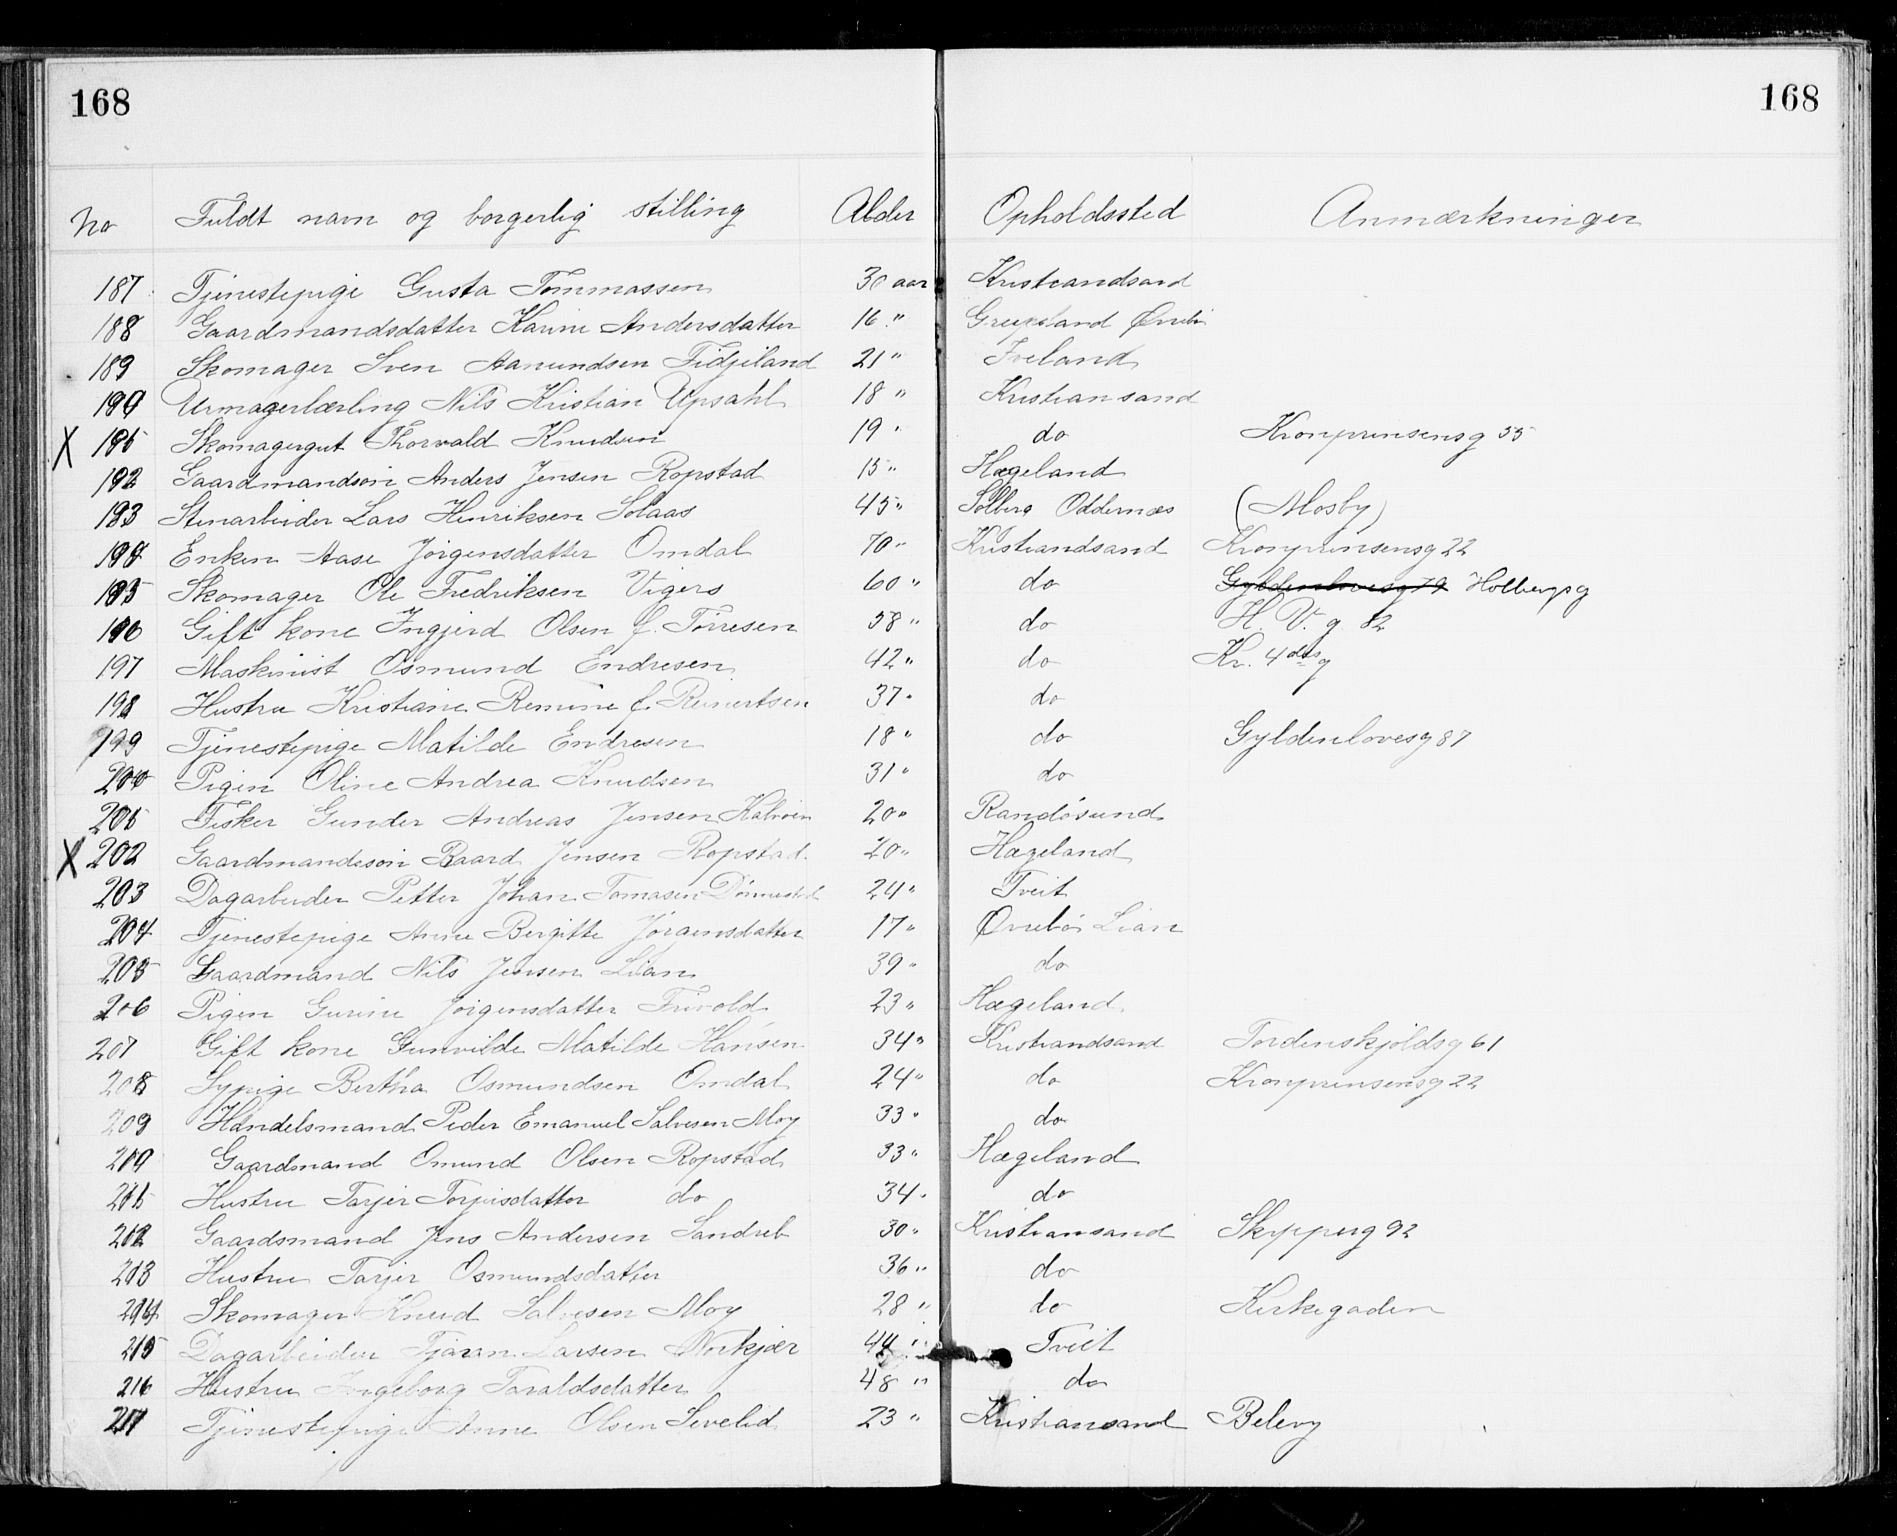 168 168
No Fuldt navn og borgerlig stilling Alder Opholdssted Anmærkninger
187 Tjenestepige Gusta Tommassen 30 aar Kristiandsand
188 Gaardmandsdatter Karine Andersdatter 16 " Greipsland Øvrebø
189 Skomager Sven Aanundsen Fidjeland 21 " Iveland
190 Urmagerlærling Nils Kristian Upsahl 18 " Kristiansand
X 191 Skomagergut Thorvald Knudsen 19 " do Kronprinsensg 55
192 Gaardmandsøn Anders Jensen Ropstad 15 " Hægeland
193 Stenarbeider Lars Henriksen Solaas 45 " Solberg Oddernæs (Mosby)
194 Enken Aase Jörgensdatter Omdal 70 " Kristiandsand Kronprinsensg 22
195 Skomager Ole Fredriksen Vigers 60 " do Gyldenlovesg 79 Holbergsg
196 Gift kone Ingjerd Olsen f. Törresen 58 " do H. V. g 82
197 Maskinist Osmund Endresen 42 " do Kr. 4des g
198 Hustru Kristiane Remine f. Reinertsen 37 " do
199 Tjenestepige Matilde Endresen 18 " do Gyldenlovesg 87
200 Pigen Oline Andrea Knudsen 31 " do
201 Fisker Gunder Andreas Jensen Kalvøen 20 " Randösund
X 202 Gaardmandssön Baard Jensen Ropstad 20 " Hægeland
203 Dagarbeider Petter Johan Tomasen 24 " Tveit
204 Tjenestepige Anne Bergitte Jörgensdatter 17 " Øvrebö Lian
205 Gaardmand Nils Jensen Lian 39 " do
206 Pigen Gurine Jörgensdatter Frivold 23 " Hægeland
207 Gift kone Gunvilde Matilde Hansen 34 " Kristiandsand Tordenskjoldsg 61
208 Sypige Bertha Osmundsen Omdal 24 " do Kronprinsensg 22
209 Handelsmand Peder Emanuel Salvesen Moy 33 " do
210 Gaardmand Omund Olsen Ropstad 33 " Hægeland
211 Hustru Tarjer Torjusdatter do 34 " do
212 Gaardsmand Jens Andersen Sandreb 30 " Kristiansand Skipperg 92
213 Hustru Tarjer Osmundsdatter 36 " do
214 Skomager Knud Salvesen Moy 28 " do Kirkegaden
215 Dagarbeider Tjøran Larsen Norkjær 44 " Tveit
216 Hustru Ingeborg Taraldsdatter 48 " do
217 Tjenestepige Anne Olsen Sevelid 23 " Kristiansand Beleny